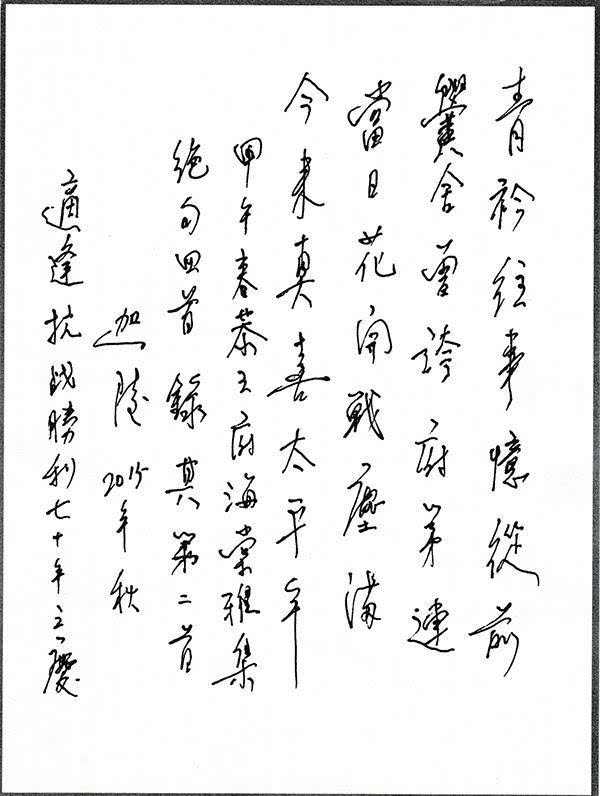 青衿往事憶從前
黌舍曾誇府第連
當日花開戰塵滿
今來真喜太平年
甲午春恭王府海棠雅集
絕句四首錄其第二首
迦陵 2015年秋
適逢抗战勝利七十年之慶